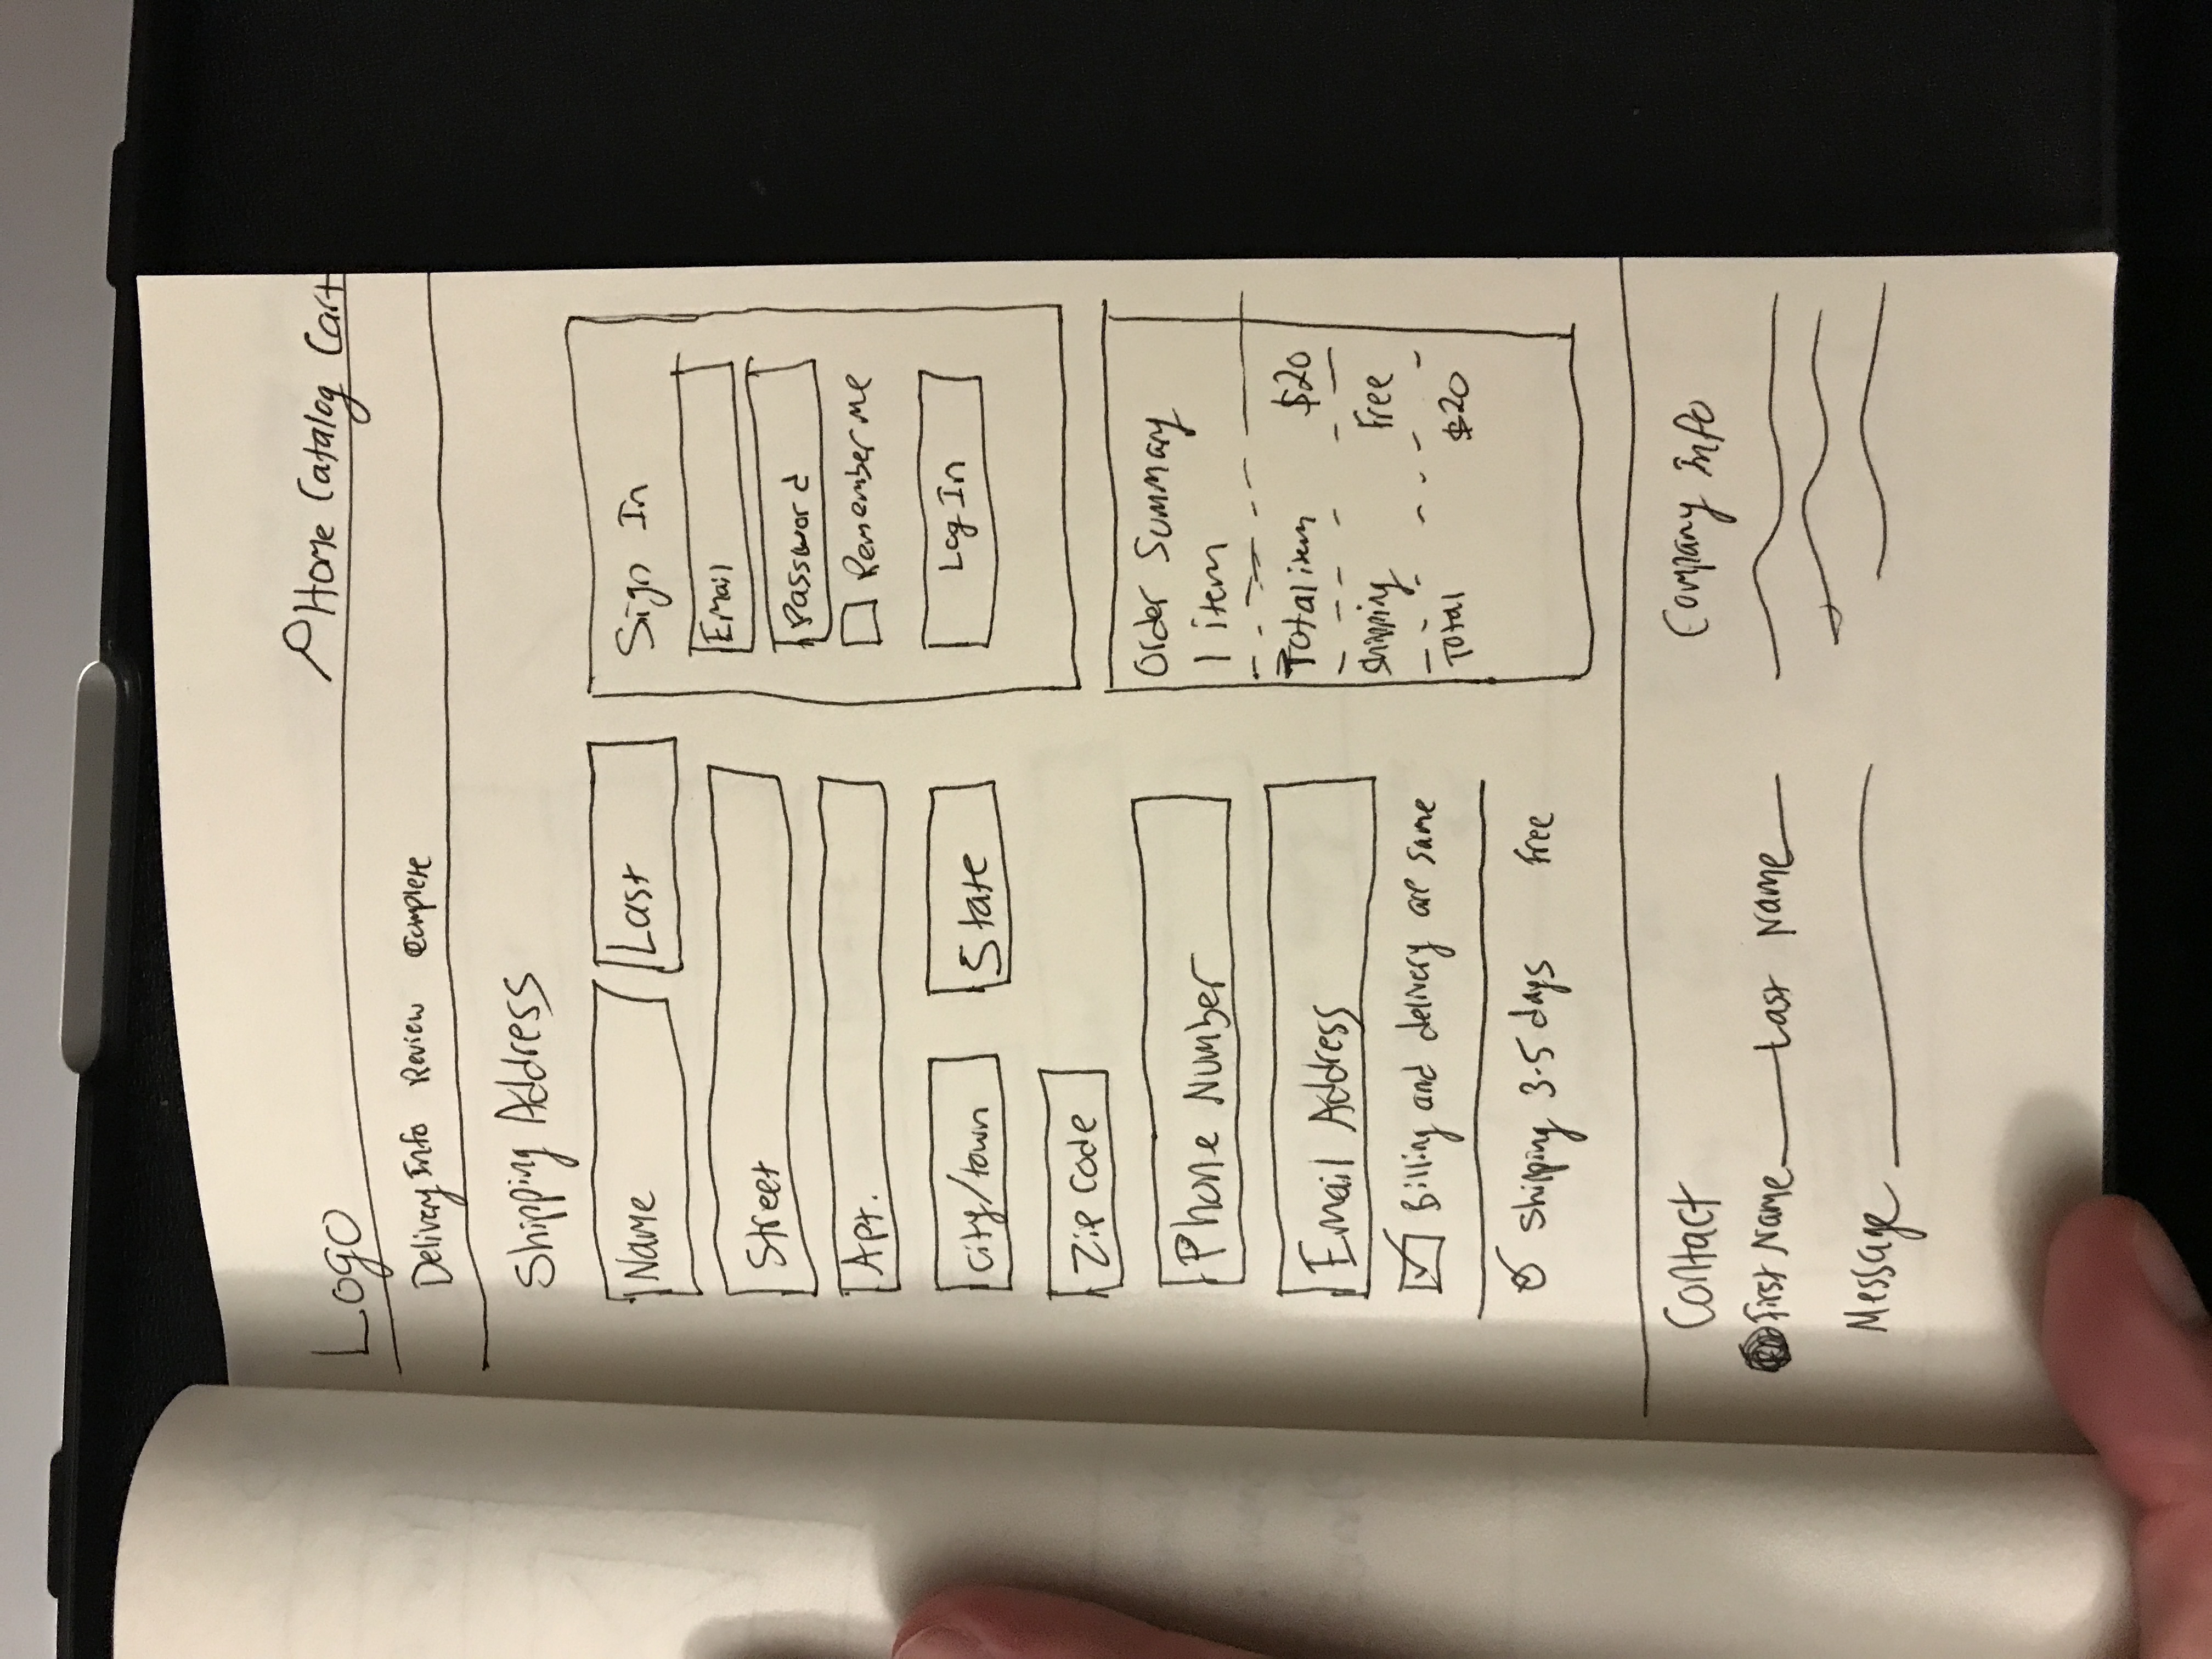 Logo
Home Catalog Cart
Delivery Info Review Complete
Shipping Address
Name Last
Street
Apt.
City/town State
Zip Code
Phone Number
Email Address
Billing and delivery are same
Shipping 3-5 days Free
Sign In
Email
Password
Remember me
Log In
Order Summary
1 item
Total item $20
Shipping Free
Total $20
Contact
First Name Last Name
Message
Company Info